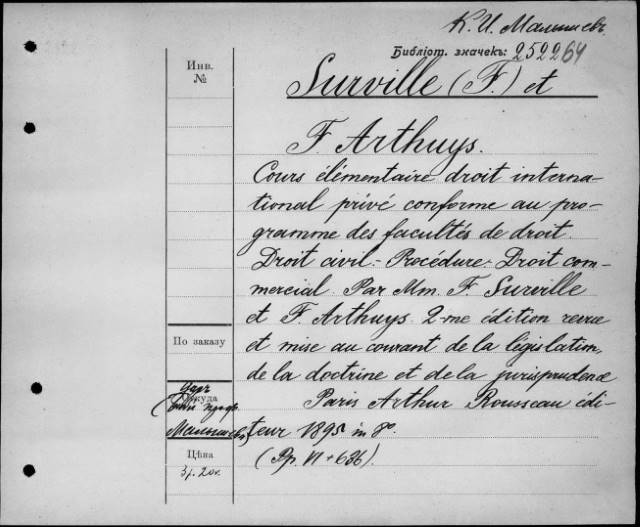 К. И. Малышевъ
Библіот. значекъ: 252264
Инв.
№
Surville (F.) et
F. Arthuys.
Cours élémentaire droit interna-
tional privé conforme au pro-
gramme des facultés de droit.
Droit civil - Procédure - Droit com-
mercial. Par Mm. F. Surville
et F. Arthuys. 2-me édition revue
et mise au courant de la législation,
de la doctrine et de la jurisprudence
Paris Arthur Rousseau édi-
teur 1895 in 8°.
(Pp. VI + 636).
По заказу
Откуда
Малышева
Цѣна
3 р. 20 к.